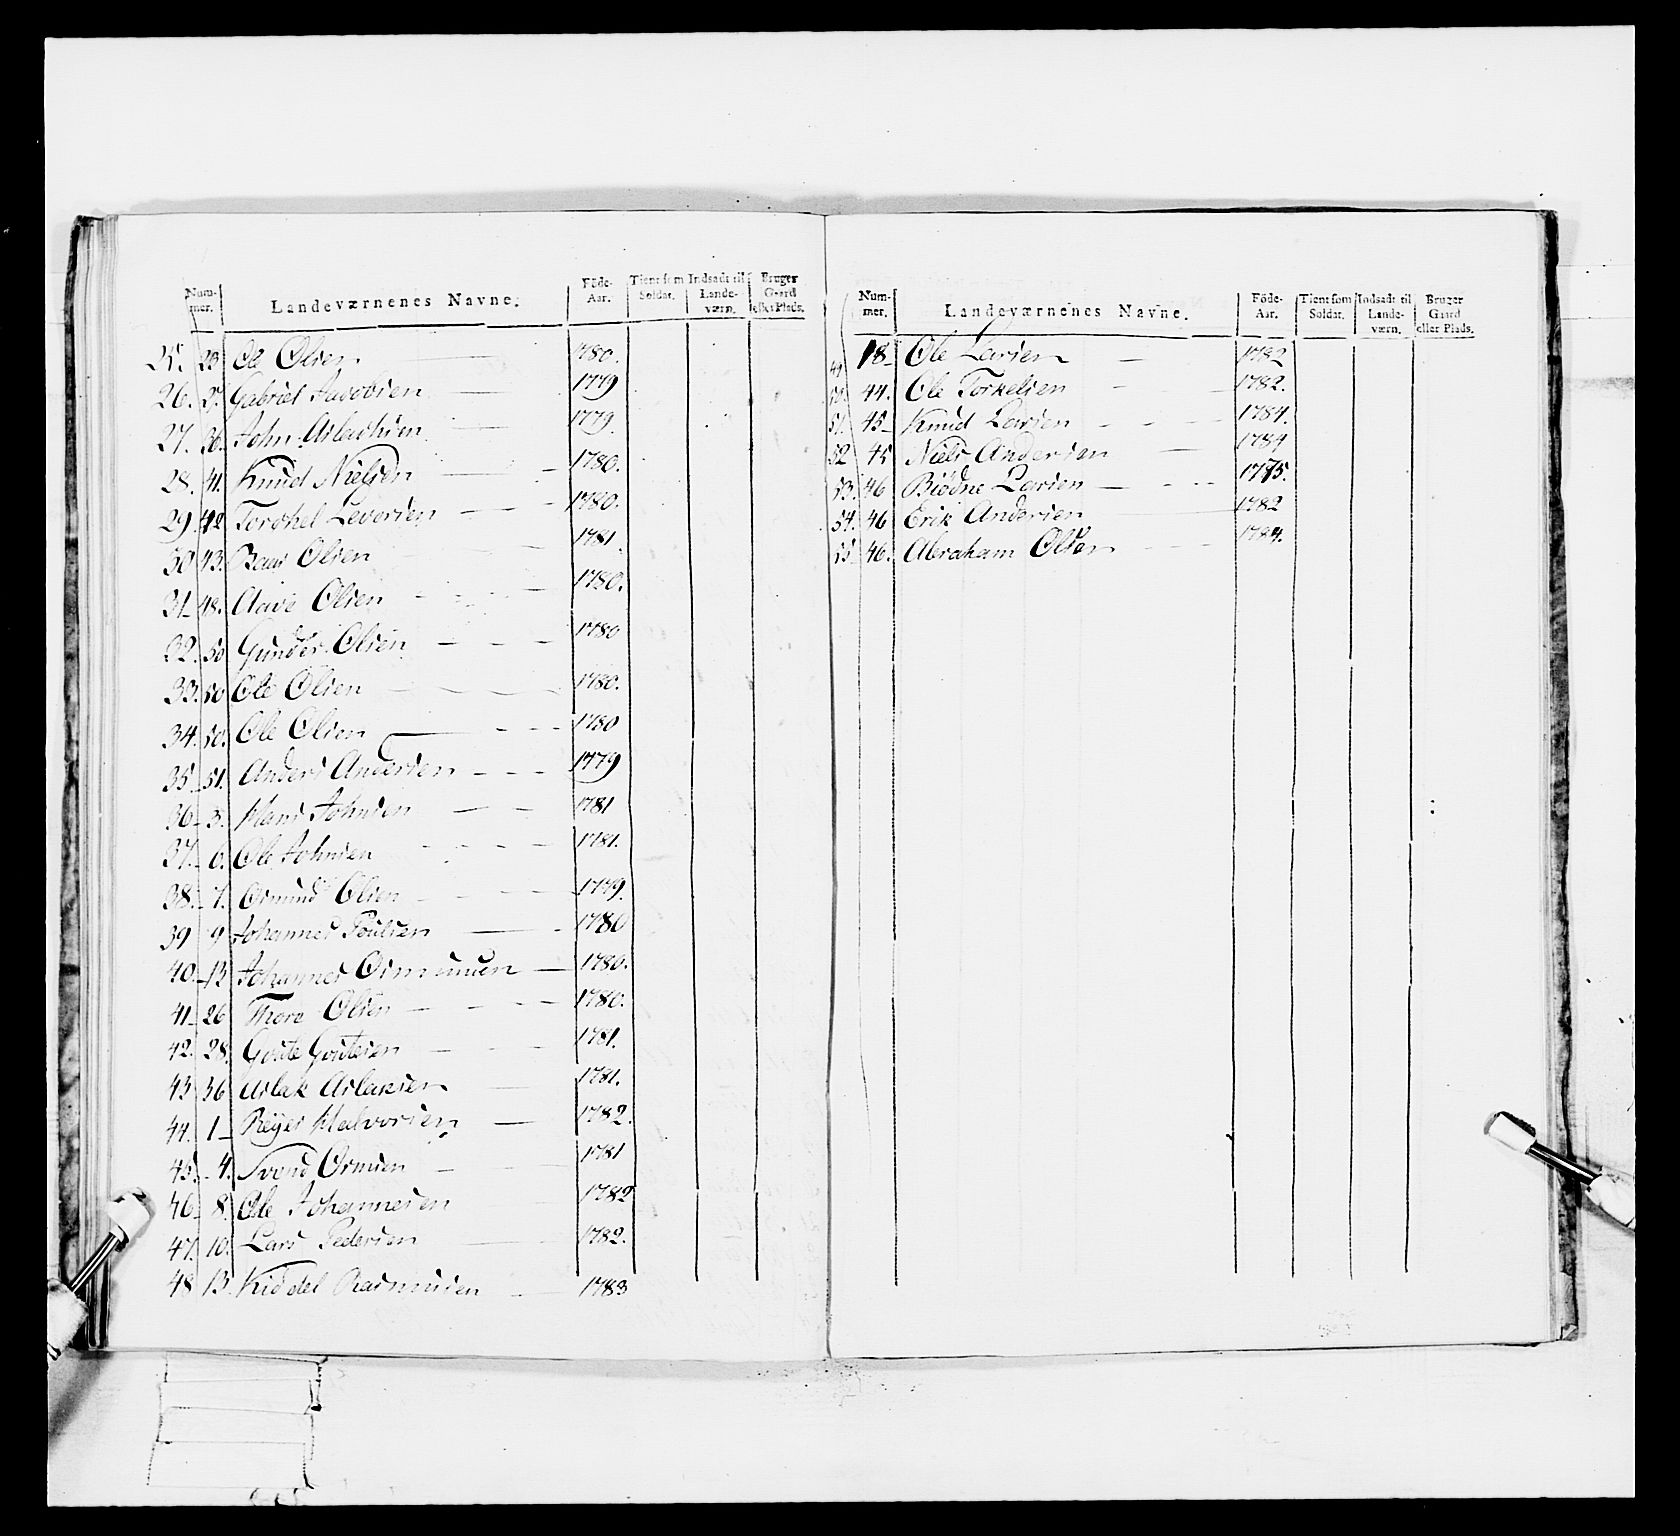 Num-mer. Landeværnenes Navne. Föde-Aar. Tient som Soldat. Indsadt til Lande-værn. Bruger Gaard eller Plads.
25. 23 Ole Olsen 1780.
26. 27. Gabriel Jacobsen 1779
27. 36. John Aslachsen 1779.
28. 41. Knud Nielsen 1780.
29. 42 Torchel Levorsen 1780.
30 43. Olsen 1781.
31 48. Aave Olsen 1780.
32. 50 Gunder Olsen 1780
33. 50 Ole Olsen 1780.
34. 50. Ole Olsen 1780
35 51. Anders Andersen 1779
36 3. Hans Johnsen 1781
37. 6. Ole Johnsen 1781.
38. 7. Osmund Olsen 1779.
39 9 Johannes Poulsen 1780
40. 13 Johannes 1780.
41 26 Thore Olsen 1780.
42. 28. Goute Goutesen 1781.
43 36 Aslak Aslaksen 1781.
44. 1 Reyer Halvorsen 1782.
45. 4. Svend Osmsen 1781
46 8. Ole Johannesen 1782
47. 10. Lars Pedersen 1782.
48 13. Kiddel Rasmusen 1783
Num-mer. Landeværnenes Navne. Föde-Aar. Tient som Soldat. Indsadt til Lande-værn. Bruger Gaard eller Plads.
49 18 Ole Larsen 1782
50. 44. Ole Torkelsen 1782.
51. 45 Knud Larsen 1784.
52 45 Niels Andersen 1784
53. 46 Biödne Larsen 1785.
54. 46 Erik Andersen 1782
55 46. Abraham Olsen 1784.